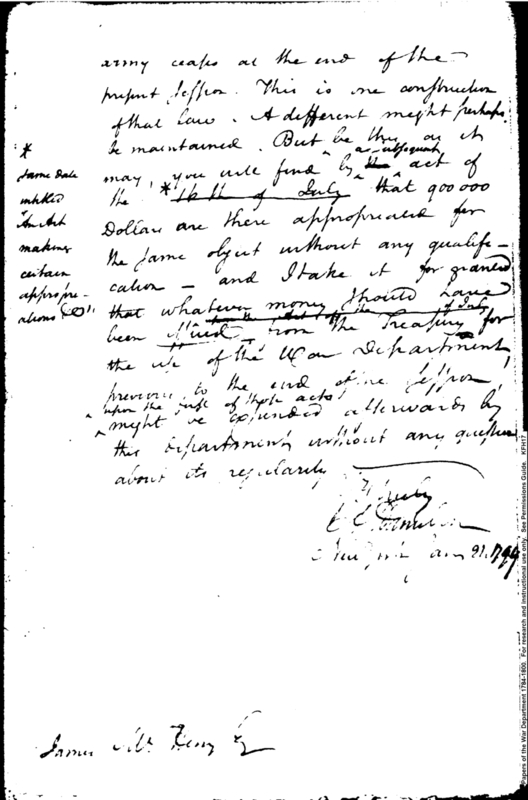 army ceases at the end of the
present Session. This is one construction
of that law. A different might perhaps
be maintained. But be this as it
may, you will find by the a subsequent act of
the * 16th of July that 900 000
Dollars are there appropriated for
the same object without any qualifi-
cation — and I take it for granted
that whatever money should have
been issued from the Treasury for
the use of the War Department,
previous to the end of the Session
upon the of those acts
might be expended afterwards by
this department without any question
about its regularity
Truly
A Hamilton
New York Jan 21. 1799
James McHenry Esq
*
same date
intitled
An Act
making
certain
appropri-
ations &c"
Papers of the War Department 1784-1800. For research and instructional use only. See Permissions Guide. KFH17